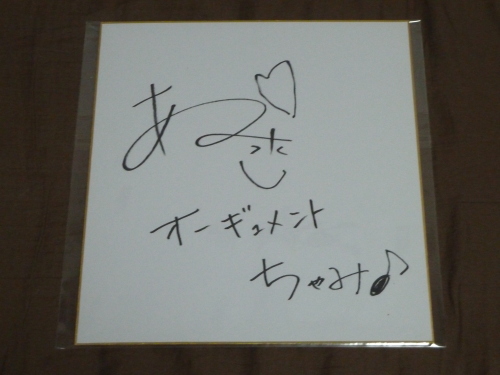 あみ
オーギュメント
ちゃみ♪